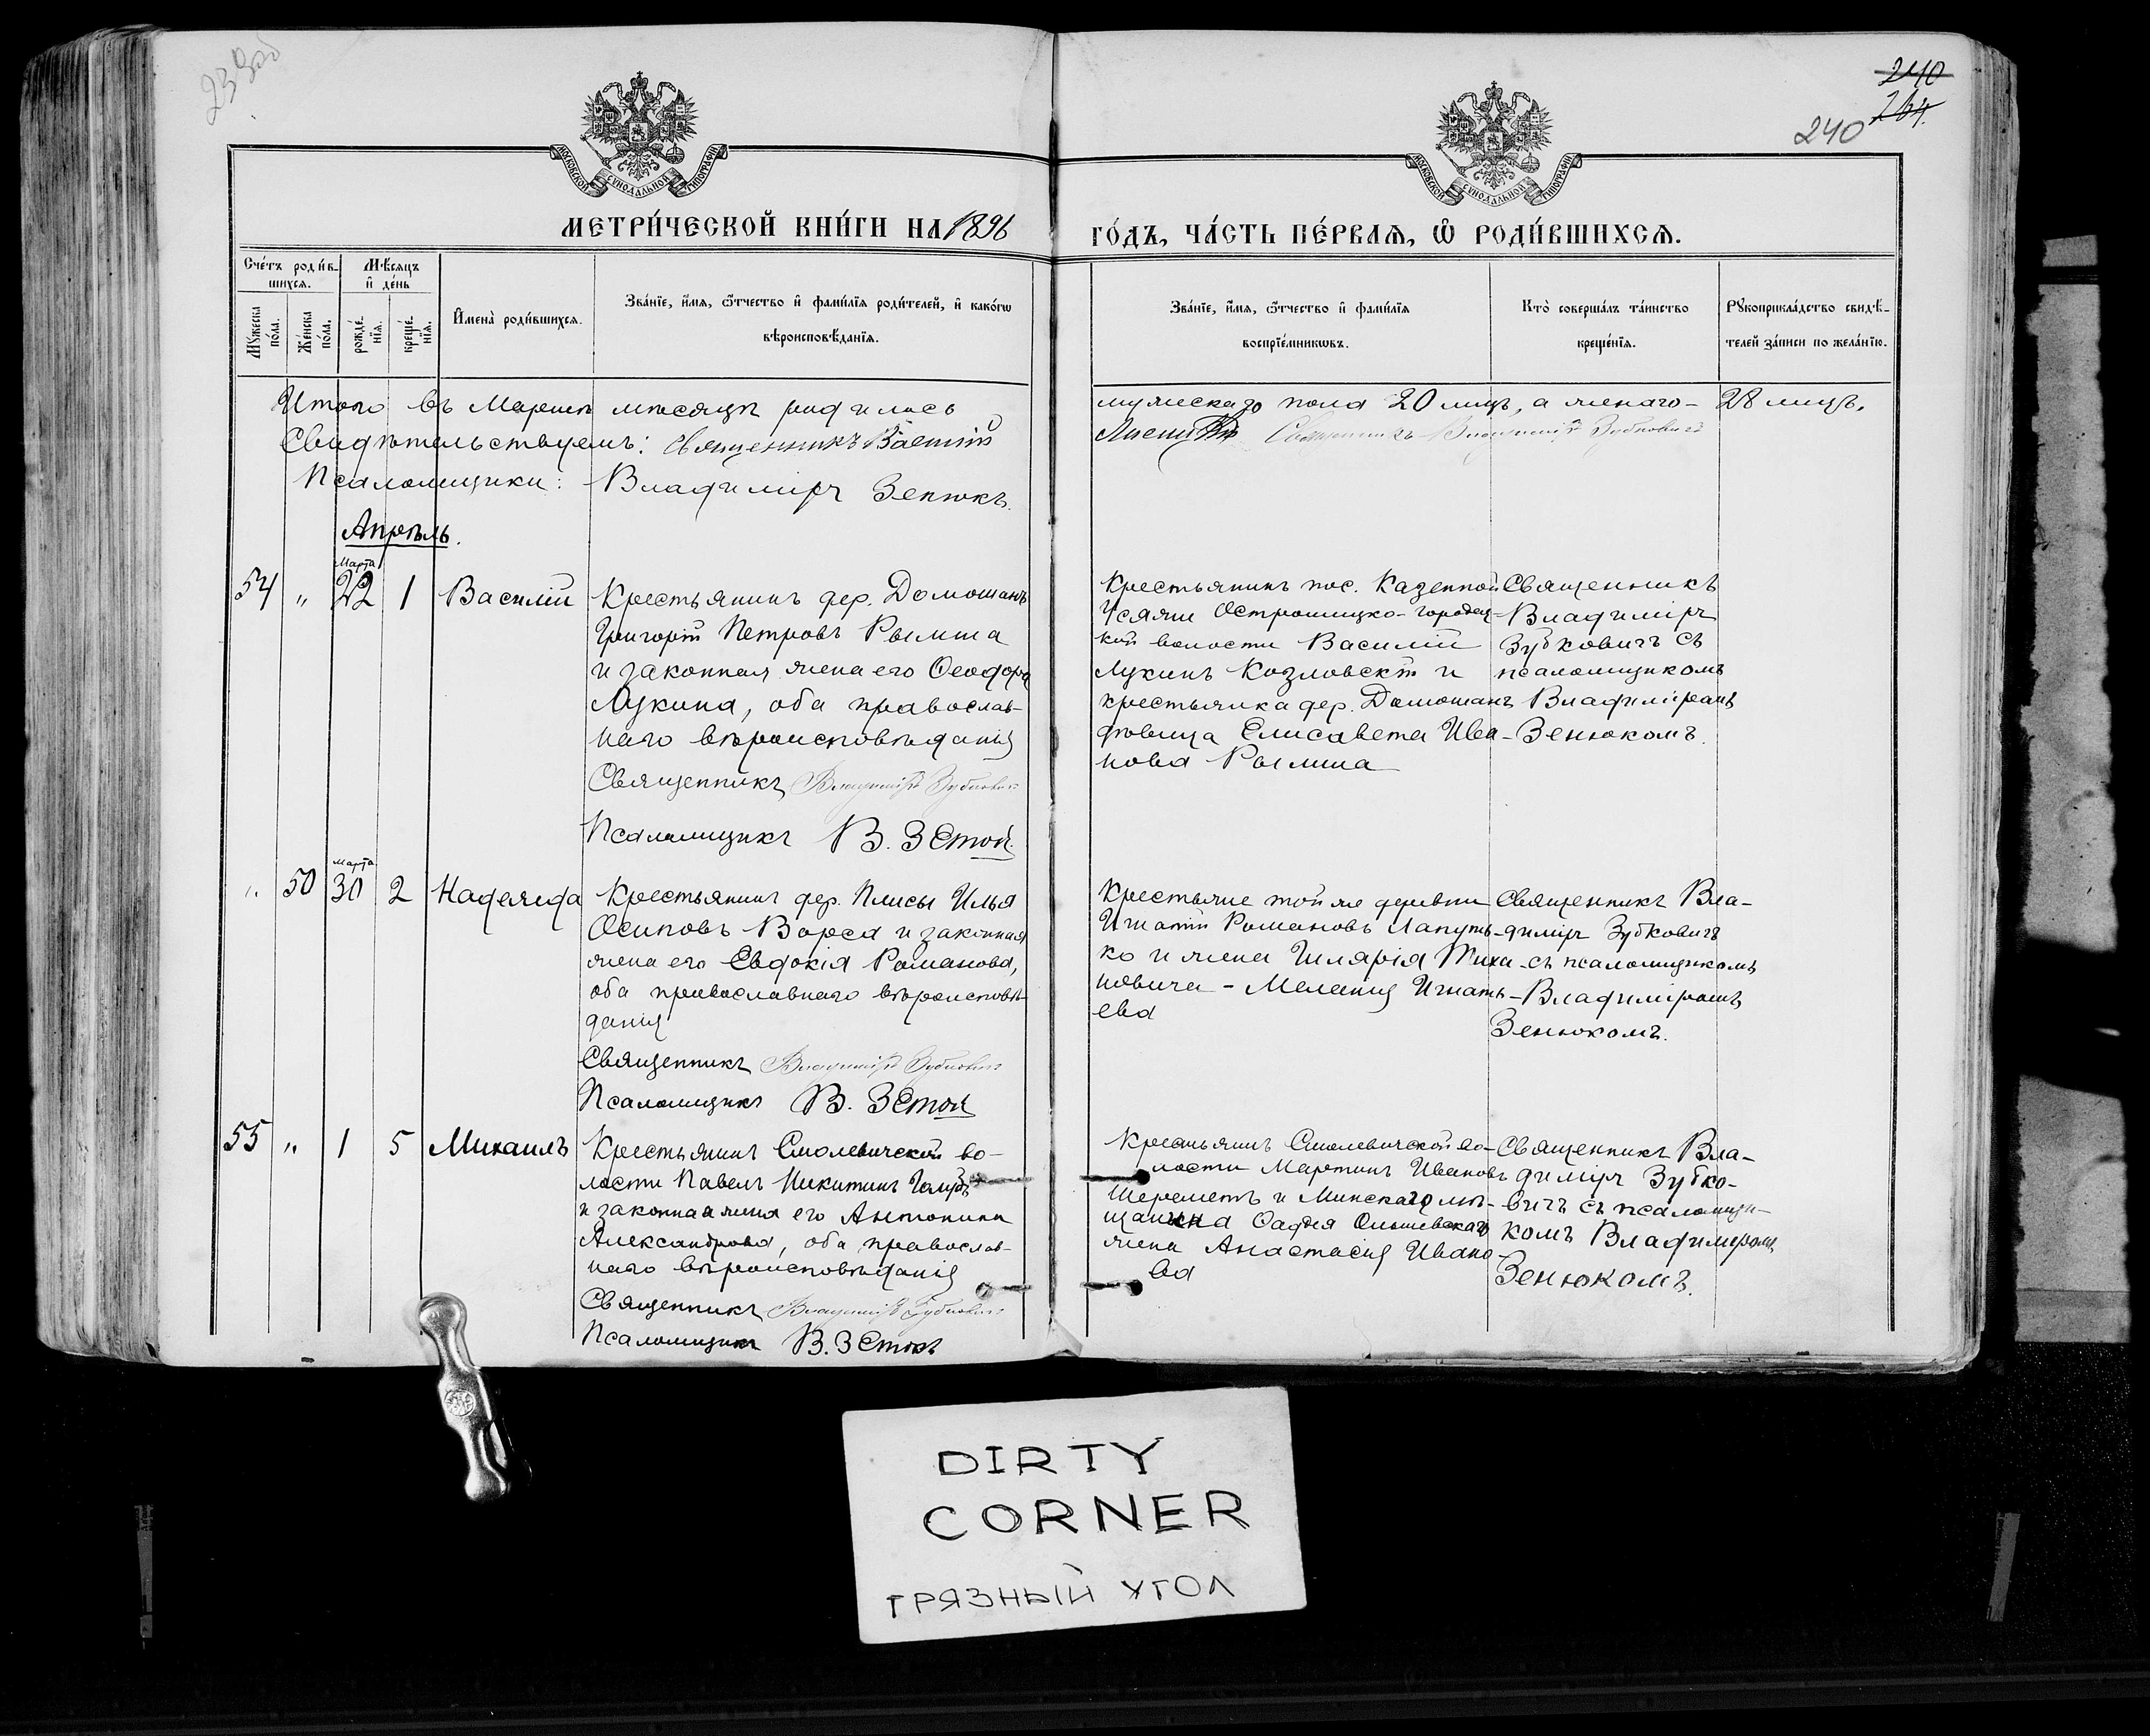 239об
240
264.
240
МОСКОВСКОЙ СѴНОДАЛЬНОЙ ТИПОГРАФІИ
МОСКОВСКОЙ СѴНОДАЛЬНОЙ ТИПОГРАФІИ
МЕТРИ́ЧЕСКОЙ КНИ́ГИ НА 1896
ГО́ДЪ, ЧА́СТЬ ПЕ́РВАѦ, Ѡ РОДИ́ВШИХСѦ.
Сче́тъ роди́в-
шихсѧ.
Мѣ́сѧцъ
и҆ де́нь
Мꙋ́жеска
по́ла.
Же́нска
по́ла.
рожде́-
нїѧ.
креще́-
нїѧ.
И҆мена̀ роди́вшихсѧ.
Зва́нїе, и҆́мѧ, ѻ҆́тчество и҆ фами́лїѧ роди́телей, и҆ како́гѡ
вѣроисповѣ́данїѧ.
Зва́нїе, и҆́мѧ, ѻ҆́тчество и҆ фами́лїѧ
воспрїе́мникѡвъ.
Кто̀ соверша́лъ та́инство
креще́нїѧ.
Рꙋкоприкла́дство свидѣ́-
телей за́писи по жела́нїю.
Итого въ Мартѣ мѣсяцѣ родилось
Свидѣтельствуемъ: Священникъ
Псаломщики: Владиміръ Зенюкъ.
мужеска го пола 20 лицъ, а женаго - 28 лицъ.
Священникъ Владиміръ Зубковичъ
Апрѣль.
54 " Марта 22 1 Василій
Крестьянинъ дер. Домошанъ
Григорій Петровъ Рымша
и законная жена его Ѳеодора
Лукина, оба православ-
наго вѣроисповѣданія
Священникъ Владиміръ Зубкович
Псаломщикъ В.
Крестьянинъ пос. Казенной
Усяжи Острошицко-городец-
кой волости Василій
Лукинъ Козловскій и
крестьянка дер. Домошанъ
дѣвица Елисавета Ива-
нова Рымша
Священникъ
Владиміръ
Зубковичъ съ
псаломщикомъ
Владиміромъ
Зенюкомъ.
" 50 марта 30 2 Надежда
Крестьянинъ дер. Плисы Илья
Осиповъ Ворса и законная
жена его Евдокія Романова,
оба православнаго вѣроисповѣ-
данія
Священникъ Владиміръ Зубкович
Псаломщикъ В.
Крестьяне той же деревни
Игнатій Романовъ Лапуть-
ко и жена Иларія Тиха-
новича - Меланія Игнать-
ева
Священникъ Вла-
диміръ Зубковичъ
съ псаломщикомъ
Владиміромъ
Зенюкомъ.
55 " 1 5 Михаилъ
Крестьянинъ Смолевичской во-
лости Павелъ Никитинъ
и законная жена его Антонина
Александрова, оба православ-
наго вѣроисповѣданія
Священникъ Владиміръ Зубкович
Псаломщикъ В.
Крестьянинъ Смолевичской во-
лости Мартинъ Ивановъ
Шереметъ и Минскаго мѣ-
щанина Ольшевскаго
жена Анастасія Ивано-
ва
Священникъ Вла-
диміръ Зубко-
вичъ съ псаломщи-
комъ Владимиромъ
Зенюкомъ.
DIRTY
CORNER
ГРЯЗНЫЙ УГОЛ